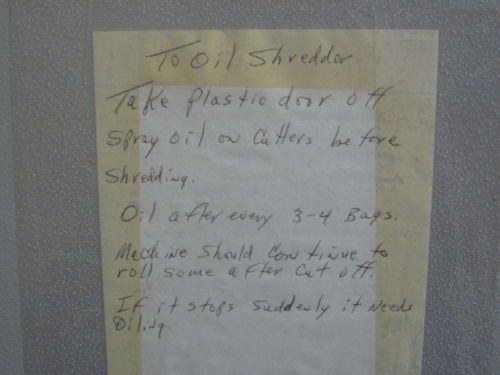 To Oil Shredder
Take plastic door off
Spray oil on Cutters before
Shredding.
Oil after every 3-4 Bags.
Machine Should Continue to
roll some after Cut off.
If it stops Suddenly it Needs
Oiling.